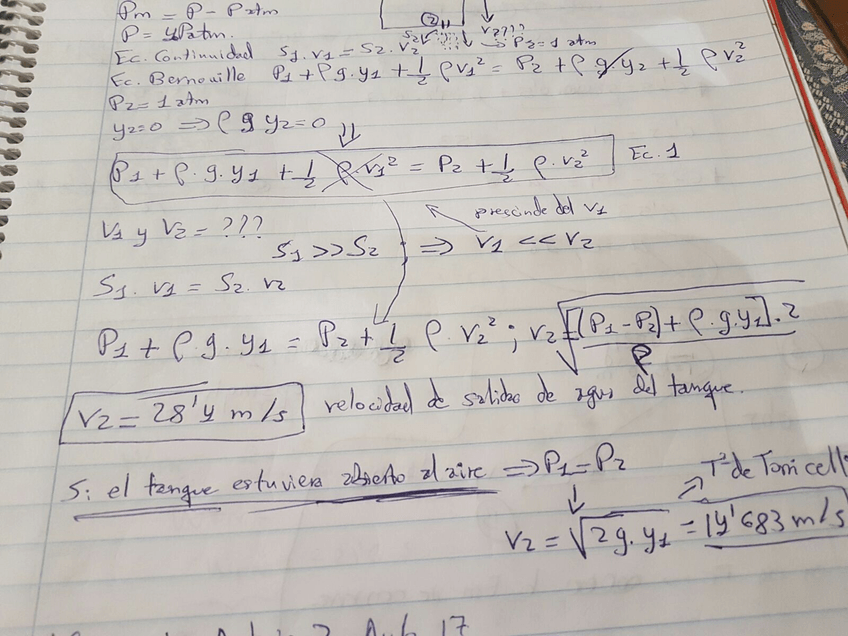 Pm = P - Patm
P = 4Patm.
② S2 V2???
→ P2 = 1 atm
Ec. Continuidad S1 . V1 = S2 . V2
Ec. Bernouille P1 + ρ g . y1 + 1/2 ρ v1² = P2 + ρ g y2 + 1/2 ρ v2²
P2 = 1 atm
y2=0 ⇒ ρ g y2=0 ⇓
P1 + ρ . g . y1 + 1/2 ρ . v1² = P2 + 1/2 ρ . v2² Ec. 1
prescinde del v1
V1 y V2 = ???
S1 >> S2 ⇒ V1 << V2
S1 . V1 = S2 . V2
P1 + ρ . g . y1 = P2 + 1/2 ρ . v2² ; v2 = √[(P1 - P2) + ρ . g . y1] . 2 / ρ
V2 = 28'4 m/s velocidad de salida de agua del tanque.
Si el tanque estuviera abierto al aire ⇒ P1 = P2
↓ ↗ Tª de Torricelli
V2 = √2 g . y1 = 14'683 m/s
17